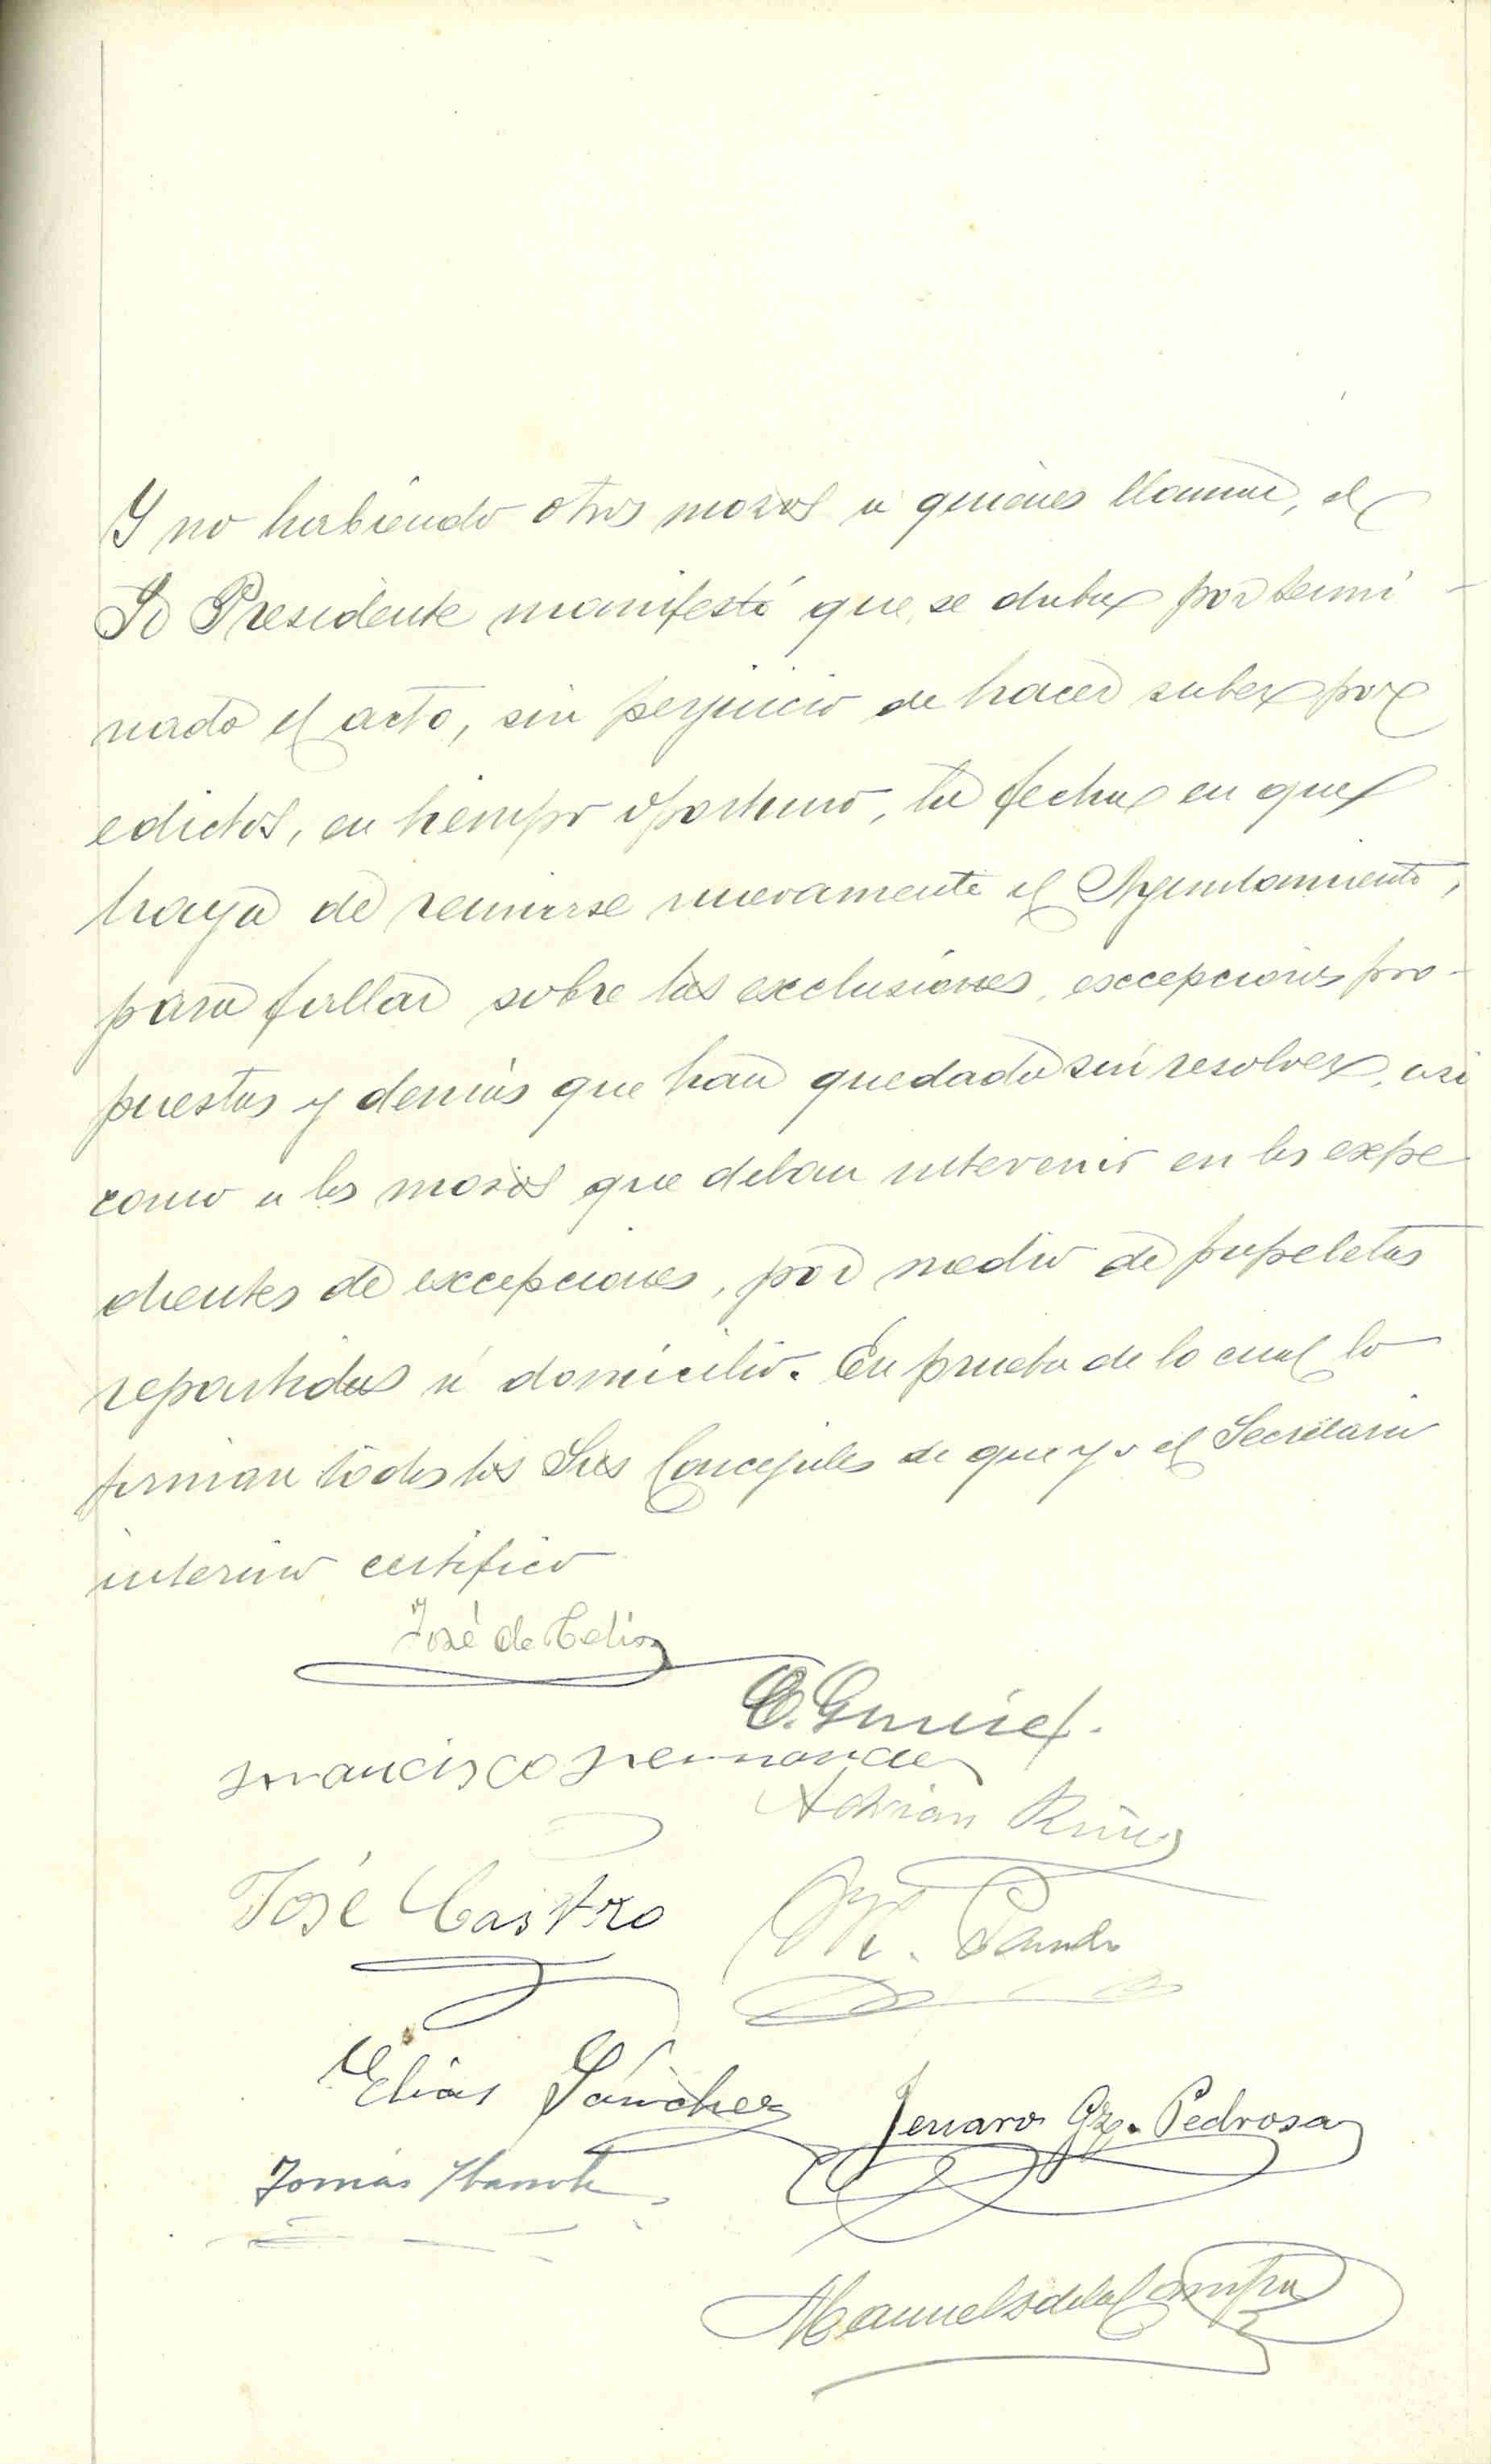 Y no habiendo otros mozos a quienes llamar, el
Sr Presidente manifestó que se daba por termi-
nado el acto, sin perjuicio de hacer saber por
edictos, en tiempo oportuno, la fecha en que
haya de reunirse nuevamente el Ayuntamiento,
para fallar sobre las exclusiones, excepciones pro-
puestas y demás que han quedado sin resolver, asi
como a los mozos que deban intervenir en los expe
dientes de excepciones, por medio de papeletas
repartidas á domicilio. En prueba de lo cual lo
firman todos los Sres Concejales de que yo el Secretario
interino certifico
José de Celis
Francisco Fernandez
Adrian
José Castro
M. Pando
Elias Sánchez
Jenaro Gz. Pedrosa
Tomás
Manuel S de la Campa